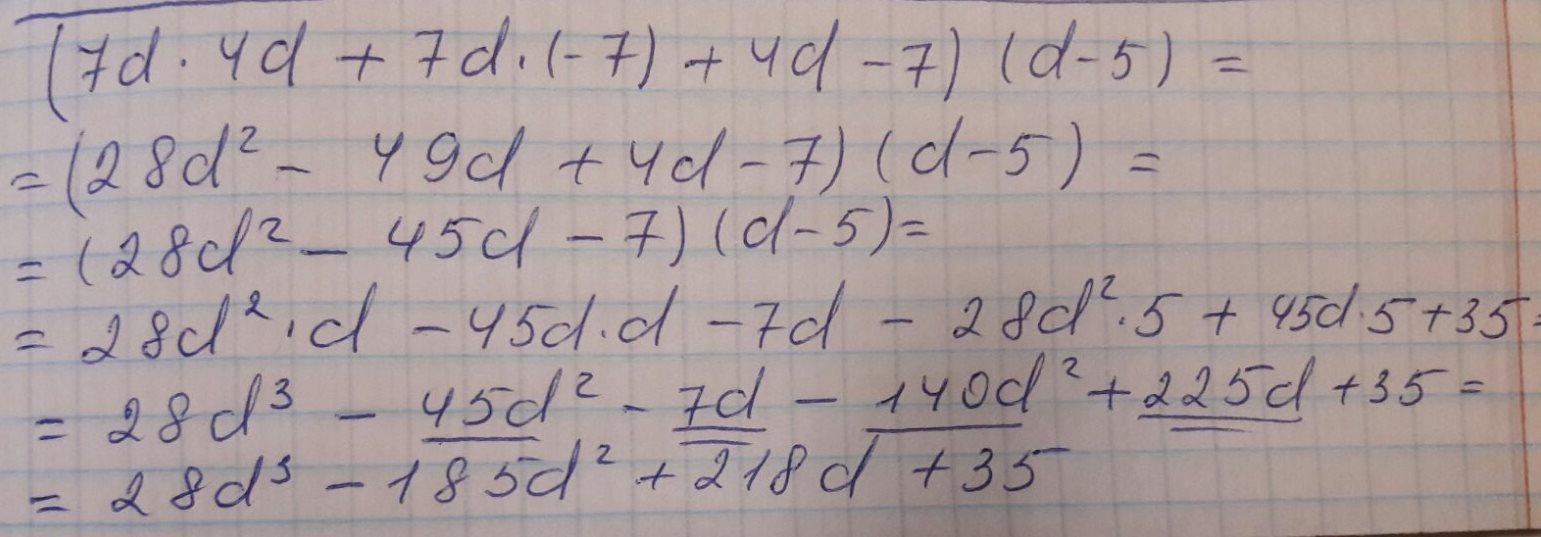 (7d · 4d + 7d · (-7) + 4d - 7) (d-5) =
= (28d² - 49d + 4d - 7) (d-5) =
= (28d² - 45d - 7) (d-5) =
= 28d² · d - 45d · d - 7d - 28d² · 5 + 45d · 5 + 35 =
= 28d³ - 45d² - 7d - 140d² + 225d + 35 =
= 28d³ - 185d² + 218d + 35